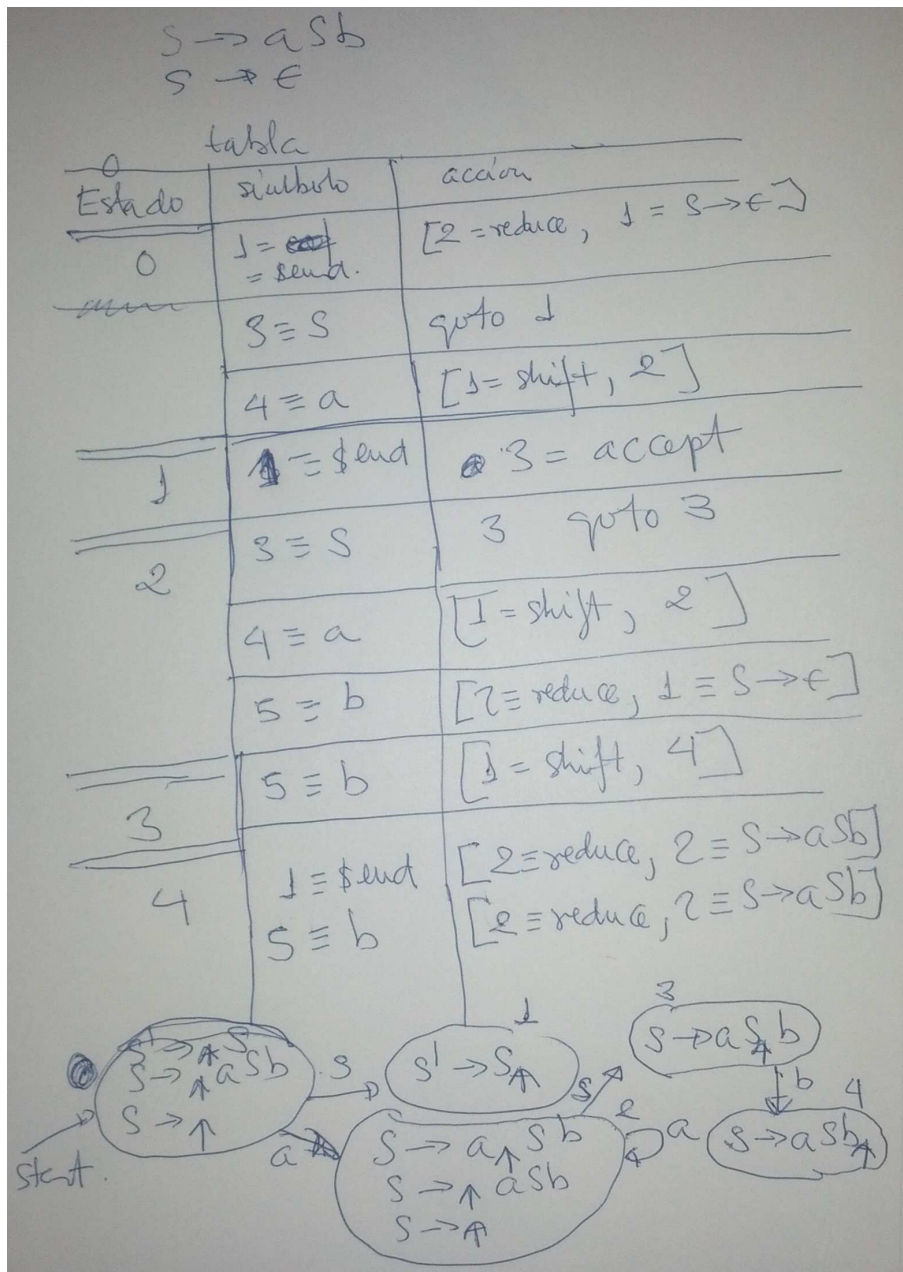 S → aSb
S → ϵ
tabla
Estado símbolo acción
0 1 = = $end. [2 = reduce, 1 = S → ϵ]
3 ≡ S goto 1
4 ≡ a [1 = shift, 2]
1 1 ≡ $end 3 = accept
2 3 ≡ S 3 goto 3
4 ≡ a [1 = shift, 2]
5 ≡ b [2 ≡ reduce, 1 ≡ S → ϵ]
3 5 ≡ b [1 = shift, 4]
4 1 ≡ $end [2 ≡ reduce, 2 ≡ S → aSb]
5 ≡ b [2 ≡ reduce, 2 ≡ S → aSb]
S' → ↑ S
S → ↑ aSb
S → ↑
start.
S
a
1
S' → S↑
S
2
S → a↑Sb
S → ↑ aSb
S → ↑
a
3
S → aS↑b
b
4
S → aSb↑